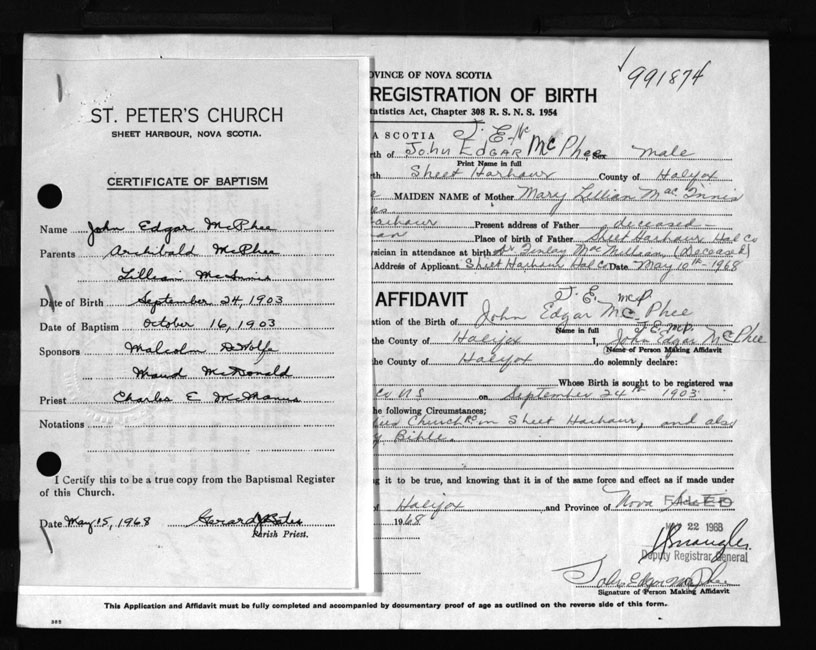 ST. PETER'S CHURCH
SHEET HARBOUR, NOVA SCOTIA.
CERTIFICATE OF BAPTISM
Name John Edgar McPhee
Parents Archibald McPhee
Lillian McInnis
Date of Birth September 24, 1903
Date of Baptism October 16, 1903
Sponsors Malcolm DeWolfe
Maud McDonald
Priest Charles E McManus
Notations
I Certify this to be a true copy from the Baptismal Register
of this Church.
Date May 15, 1968
Parish Priest.
991874
OVINCE OF NOVA SCOTIA
REGISTRATION OF BIRTH
tatistics Act, Chapter 308 R. S. N. S. 1954
A SCOTIA J. E. Mc
rth of John EDGAR McPhee Sex male
Print Name in full
th Sheet Harbour County of Halifax
MAIDEN NAME of Mother Mary Lillian MacInnis
arbour Present address of Father deceased
an Place of birth of Father Sheet Harbour Hal Co
ysician in attendance at birth Dr Finlay (Deceased)
Address of Applicant Sheet Harbour Hal Co Date May 10th - 1968
AFFIDAVIT J. E. McP
ation of the Birth of John Edgar McPhee
Name in full J. E. McP
the County of Halifax I, John Edgar McPhee
(Name of Person Making Affidavit
the County of Halifax do solemnly declare:
Whose Birth is sought to be registered was
Co N S on September 24th 1903
he following Circumstances;
Church RC in Sheet Harbour, and also
y Bible.
g it to be true, and knowing that it is of the same force and effect as if made under
f Halifax and Province of Nova
FILED
1968
22 1968
Deputy Registrar General
John Edgar McPhee
Signature of Person Making Affidavit
This Application and Affidavit must be fully completed and accompanied by documentary proof of age as outlined on the reverse side of this form.